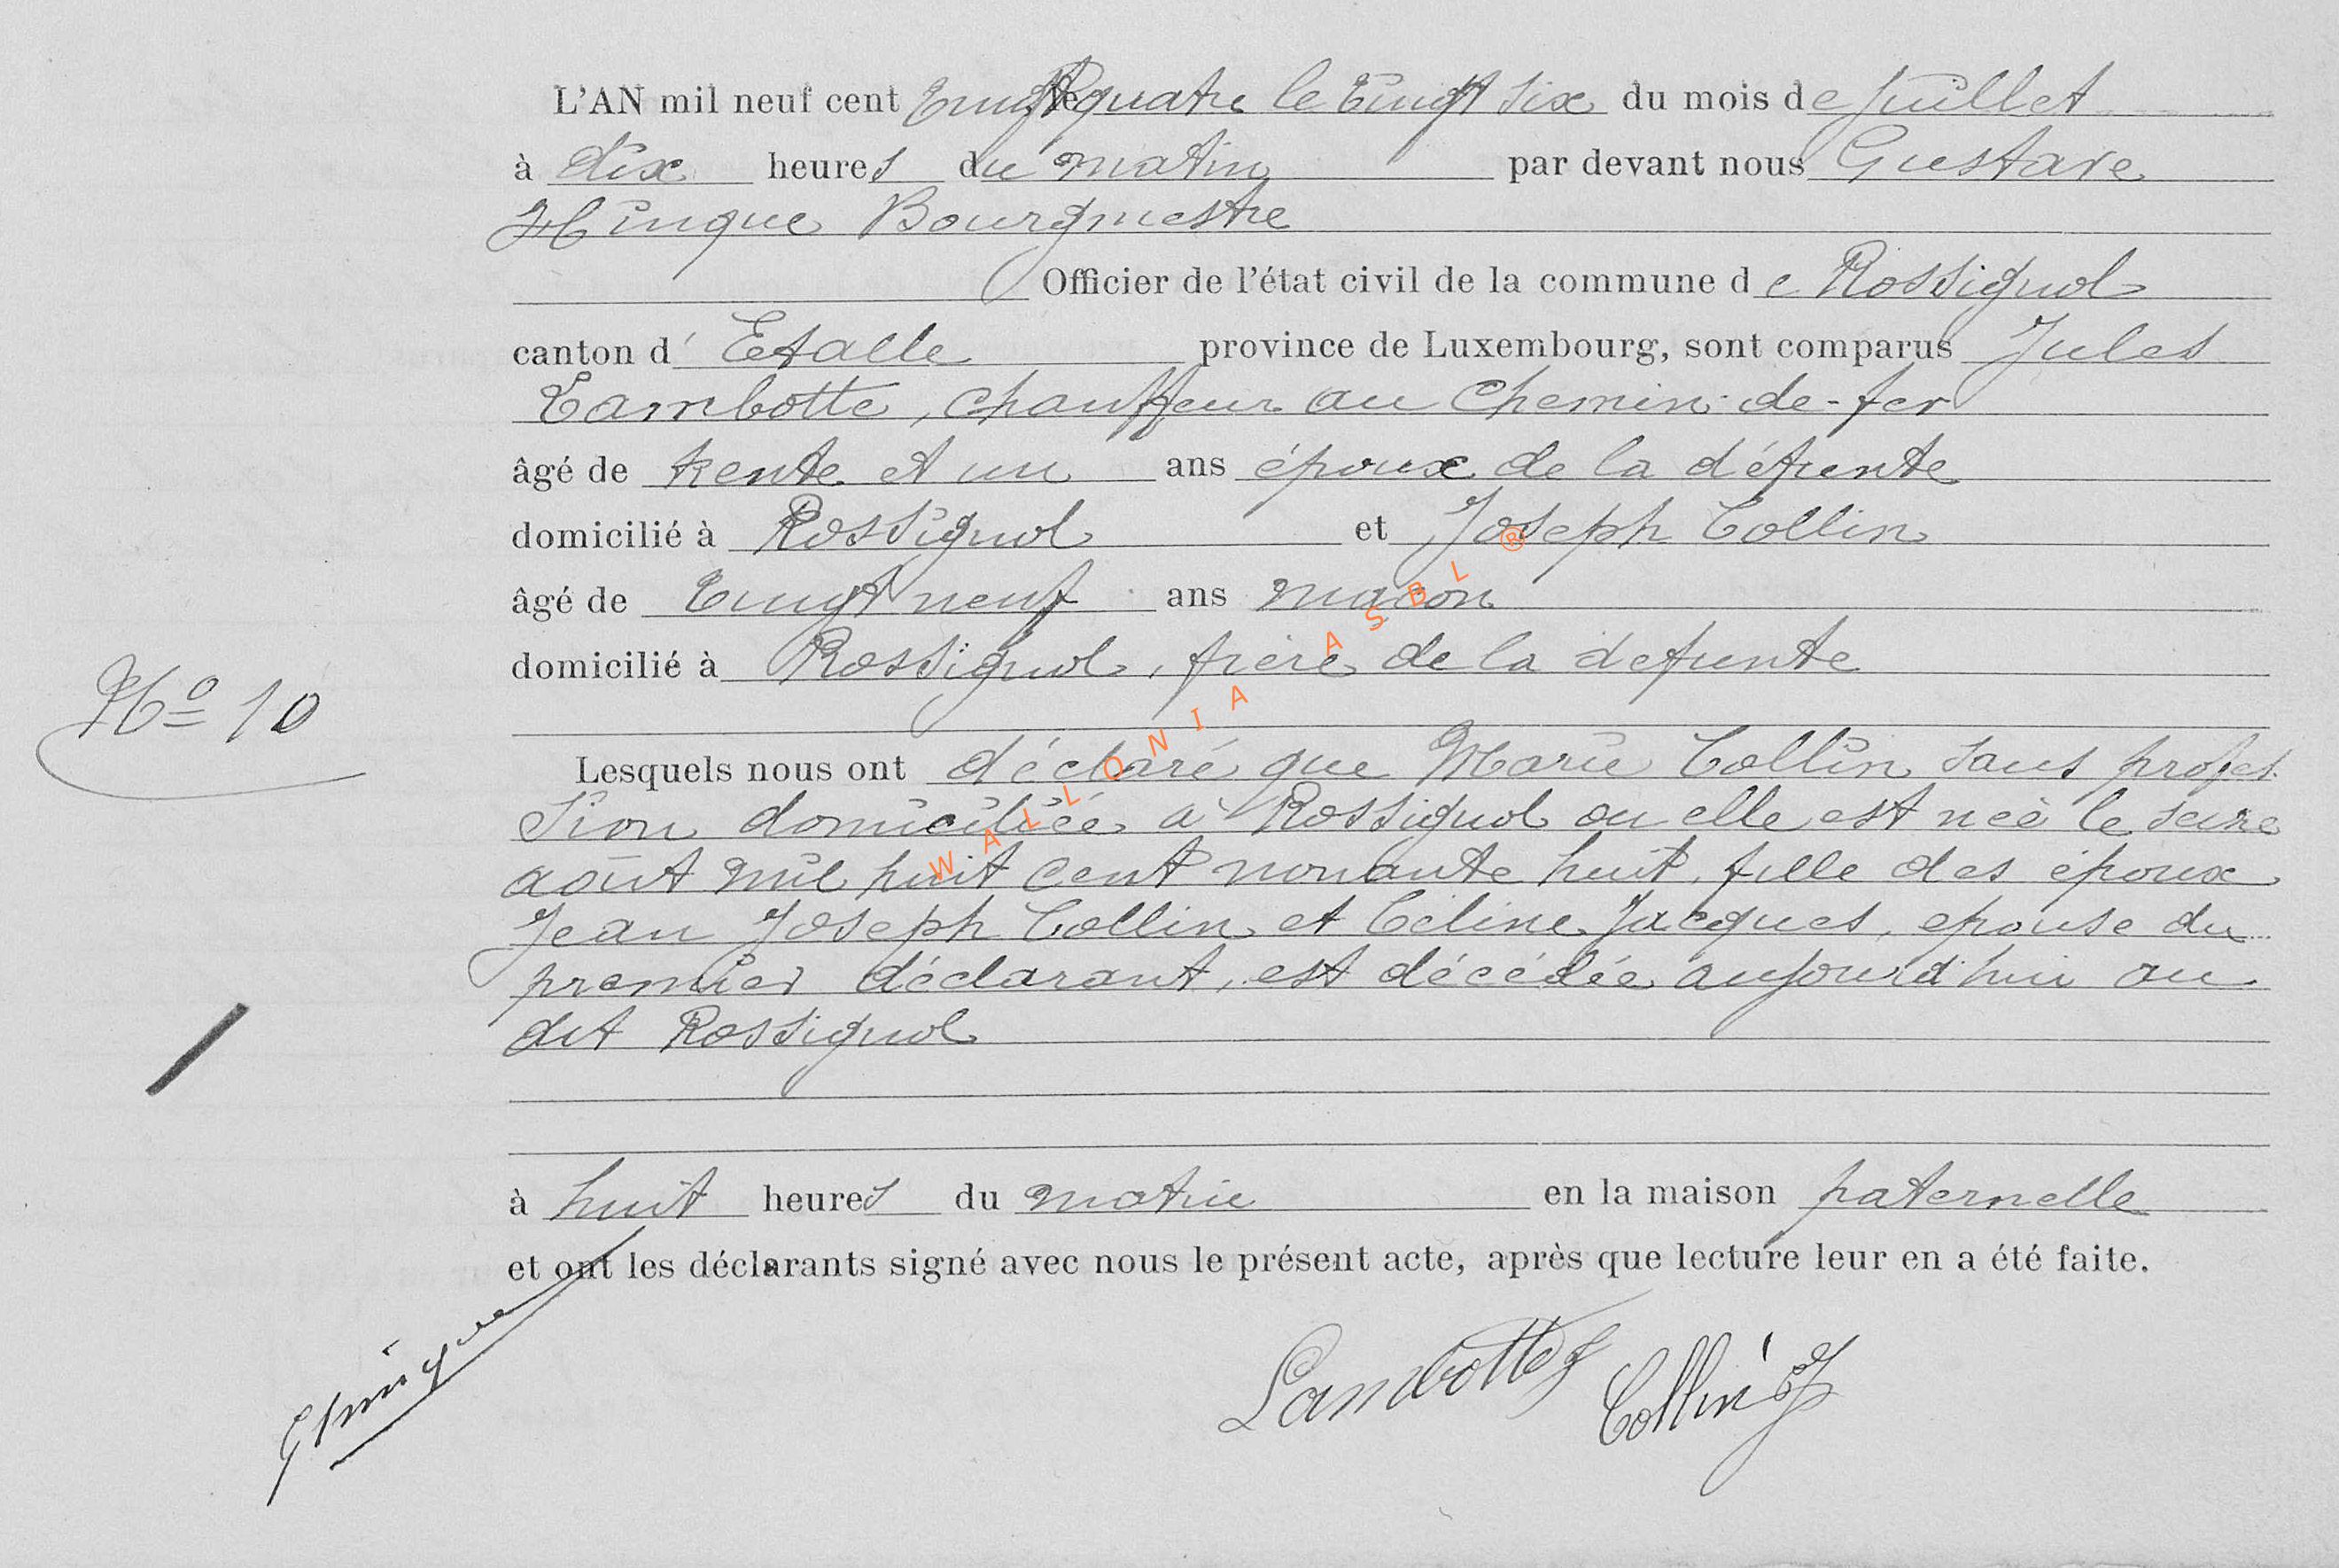 L'AN mil neuf cent vingt quatre le vingt six du mois de juillet
à dix heures du matin par devant nous Gustave
Hinque Bourgmestre
Officier de l'état civil de la commune de Rossignol
canton d' Etalle province de Luxembourg, sont comparus Jules
Lambotte, chauffeur au chemin-de-fer
âgé de trente et un ans époux de la défunte
domicilié à Rossignol et Joseph Collin
âgé de vingt neuf ans maçon
domicilié à Rossignol, frère de la defunte
No 10
Lesquels nous ont déclaré que Marie Collin sans profes-
sion domiciliée à Rossignol ou elle est née le seize
août mil huit cent nonante huit, fille des époux
Jean Joseph Collin et Céline Jacques, epouse du
premier déclarant, est décédée aujourd'hui au
dit Rossignol
à huit heures du matin en la maison paternelle
et ont les déclarants signé avec nous le présent acte, après que lecture leur en a été faite.
GHinque
Lambotte J Collin J
WALLONIA ASBL ®